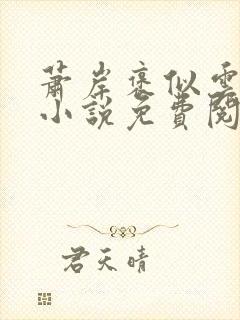 蕭岸褒似
小説免費閱
君天晴